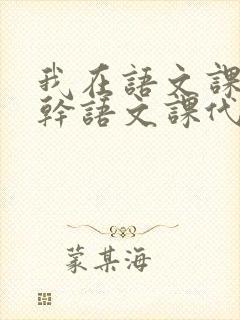 我在語文課
幹語文課代
蒙某海